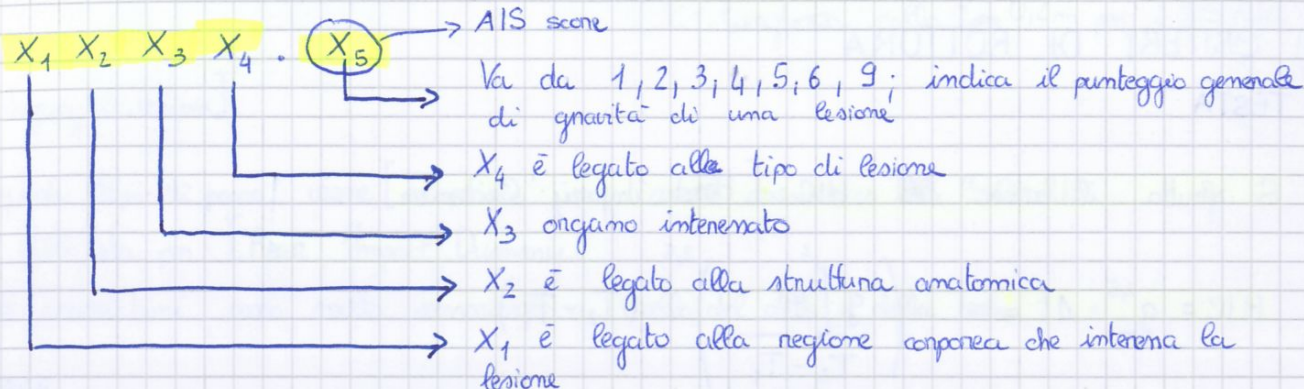 X1 X2 X3 X4 . X5 → AIS score
Va da 1, 2, 3, 4, 5, 6, 9; indica il punteggio generale
di gravità di una lesione
X4 è legato alla tipo di lesione
X3 organo interessato
X2 è legato alla struttura anatomica
X1 è legato alla regione corporea che interessa la
lesione